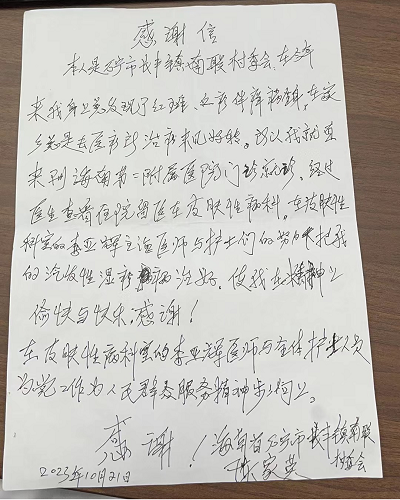 感谢信
本人是万宁市长丰镇南联村委会，在3年
来我身上总发现了红球、皮疹伴痒病变，在家
乡总是去医疗所治疗未见好转。所以我就直
来到海南省二附属医院门诊就诊，经过
医生查看住院留医在皮肤性病科。在皮肤性
科室的李亚辉主治医师与护士们的努力把我
的泛发性湿疹病治好，使我在精神上
愉快与快乐，感谢！
在皮肤性病科室的李亚辉医师与全体护士人员
为党工作为人民群众服务精神步上。
感谢！海南省万宁市长丰镇南联
村委会
家英
2023年10月21日